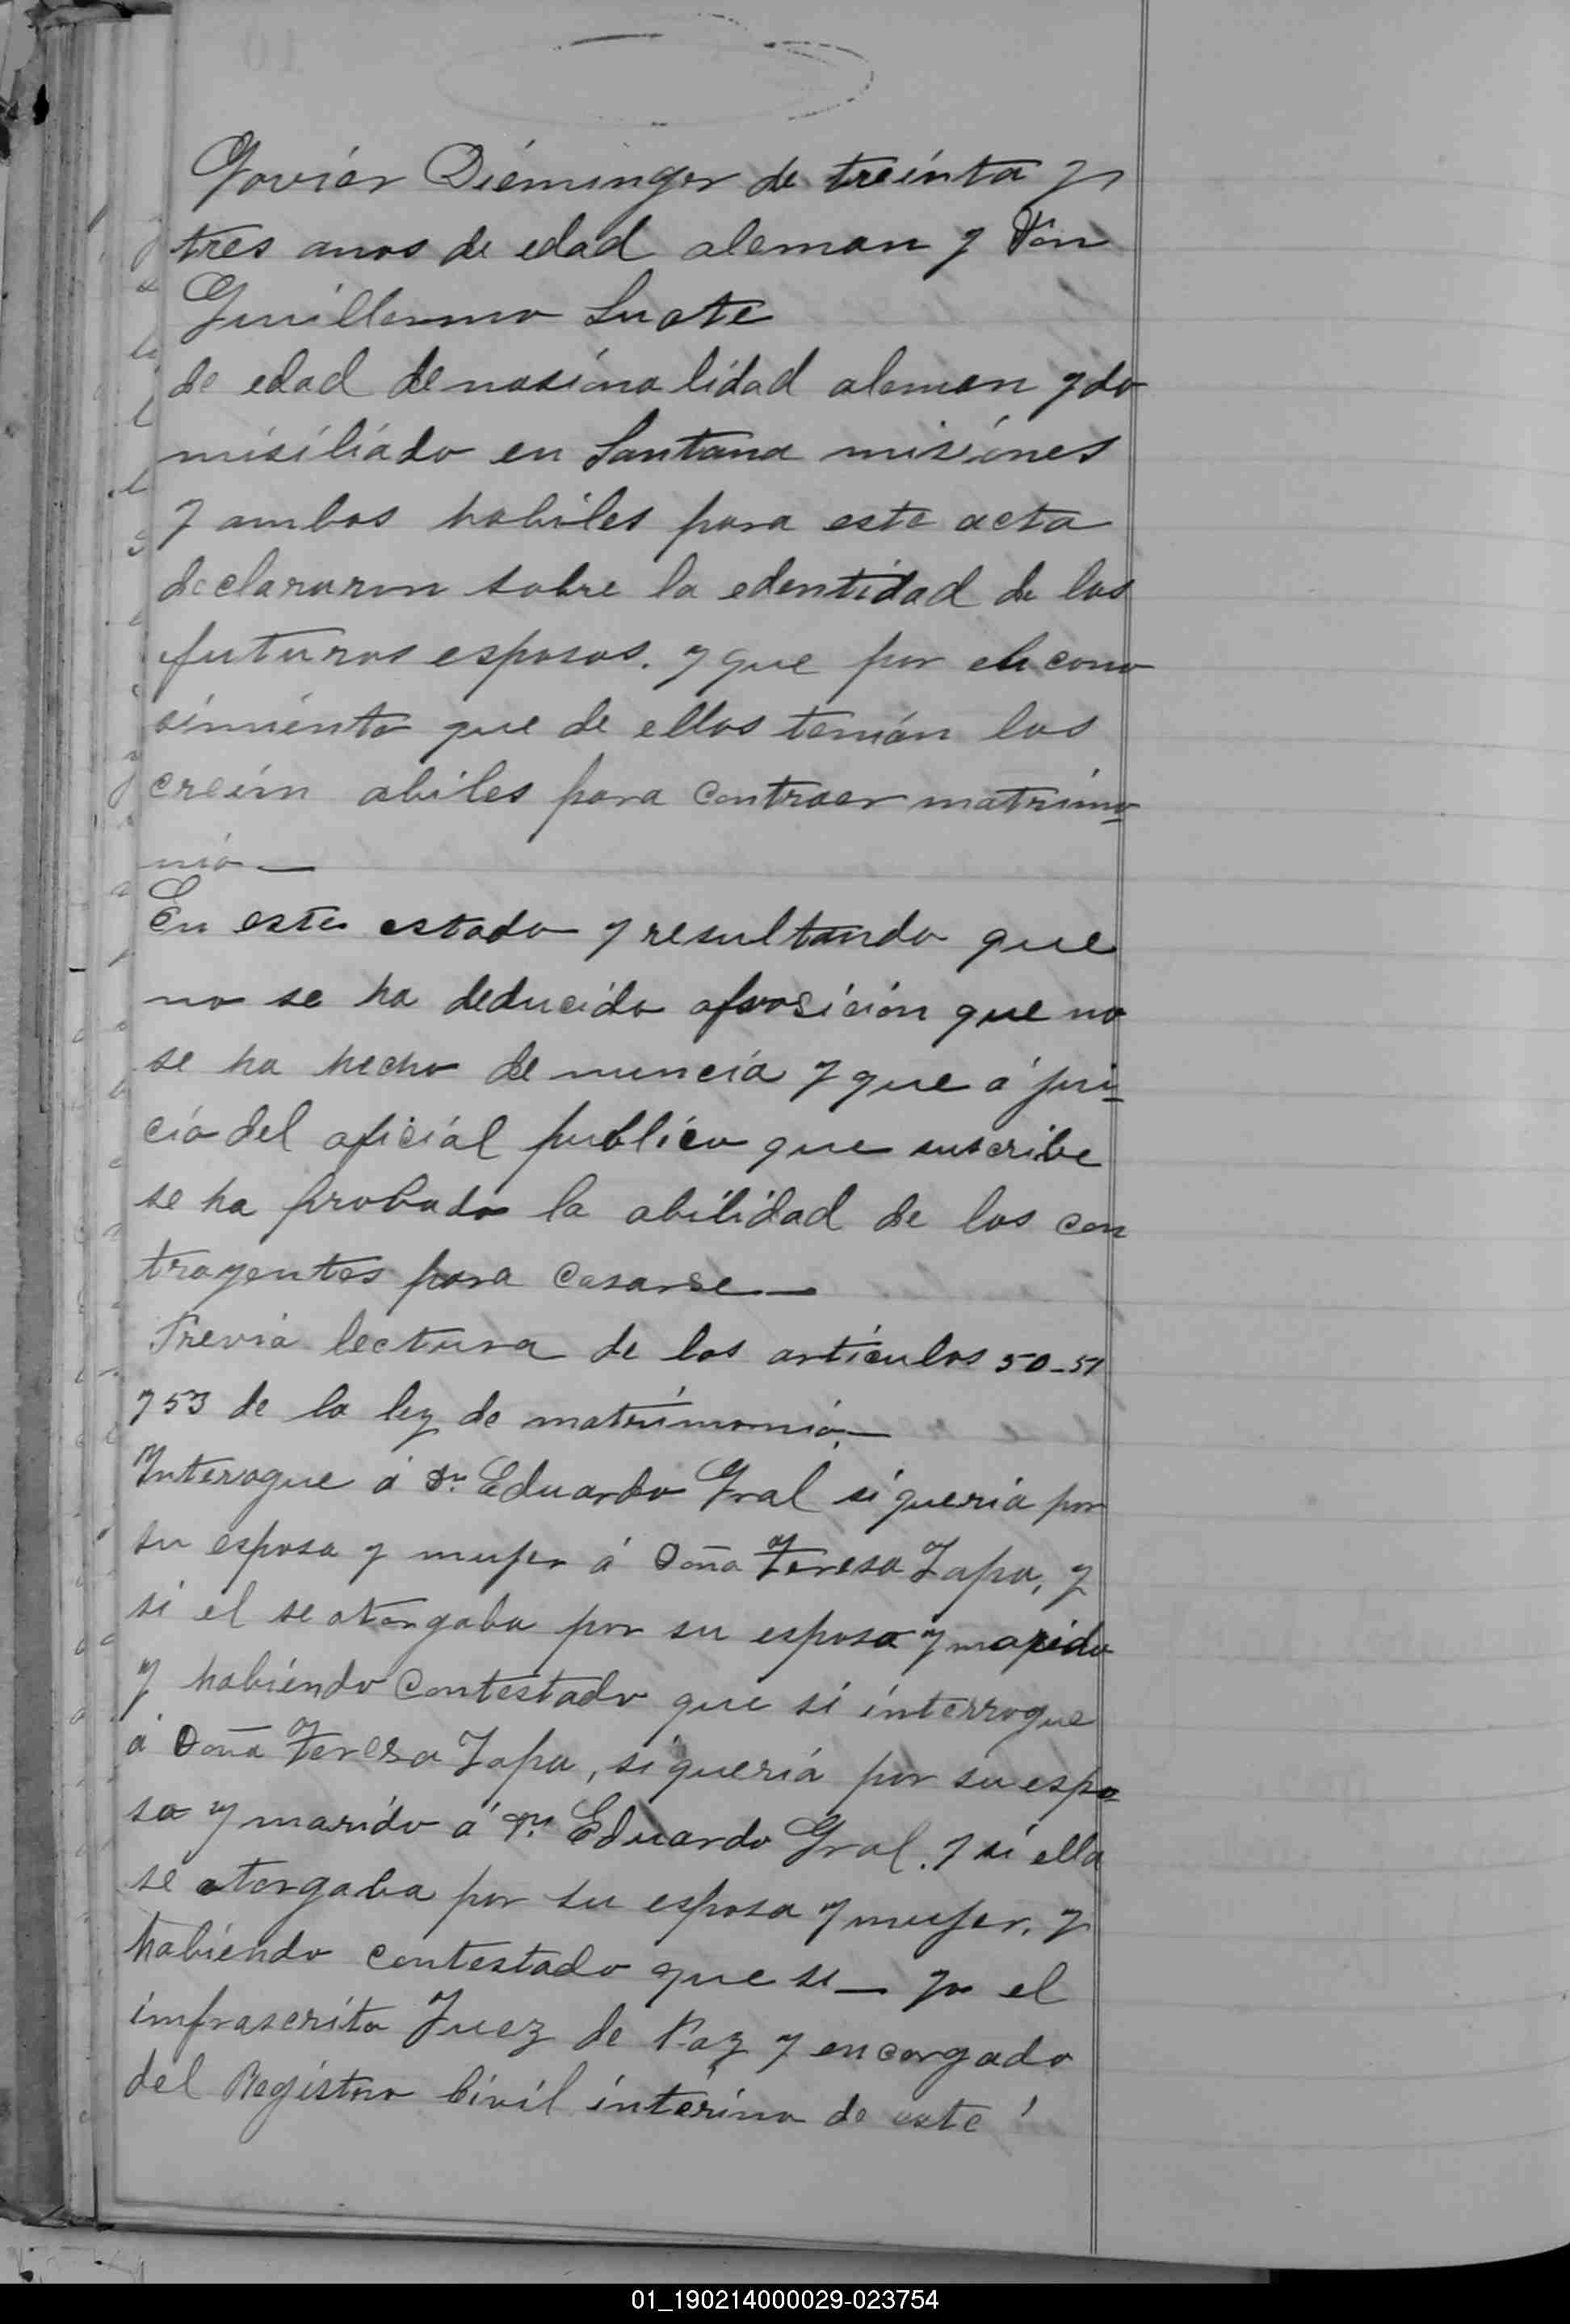 Javiér Diéminger de treínta y
tres anos de edad aleman y Don
Guillermo Luate
de edad de nasíonalidad aleman y do
misiliádo en Santana misiónes
y ambos habiles para este acta
declararon sobre la edentidad de los
futuros esposos. y que por el cono
simiénto que de ellos tenián los
creién abiles para contraer matrimo
nio—
En este estado y resultando que
no se ha deducido oposición que no
se ha hecho denuncia y que á jui-
cio del oficiál publico que suscribe
se ha probado la abilidad de los con
trayentes para casarse—
Previa lectura de los artículos 50-51
y 53 de la ley de matrimonio—
Interogue á Dn. Eduardo Gral si queria por
su esposa y mujer á Doña Teresa Zapa, y
si el se otorgaba por su esposo y marido
y habiéndo contestado que si interrogue
á Doña Teresa Zapa, si queria por su espo-
so y marido á Dn. Eduardo Gral. y si ella
se otorgaba por su esposa y mujer, y
habiendo contestado que si— yo el
infrascrito Juez de Paz y encargado
del Registro Civil interino de este
01_190214000029-023754